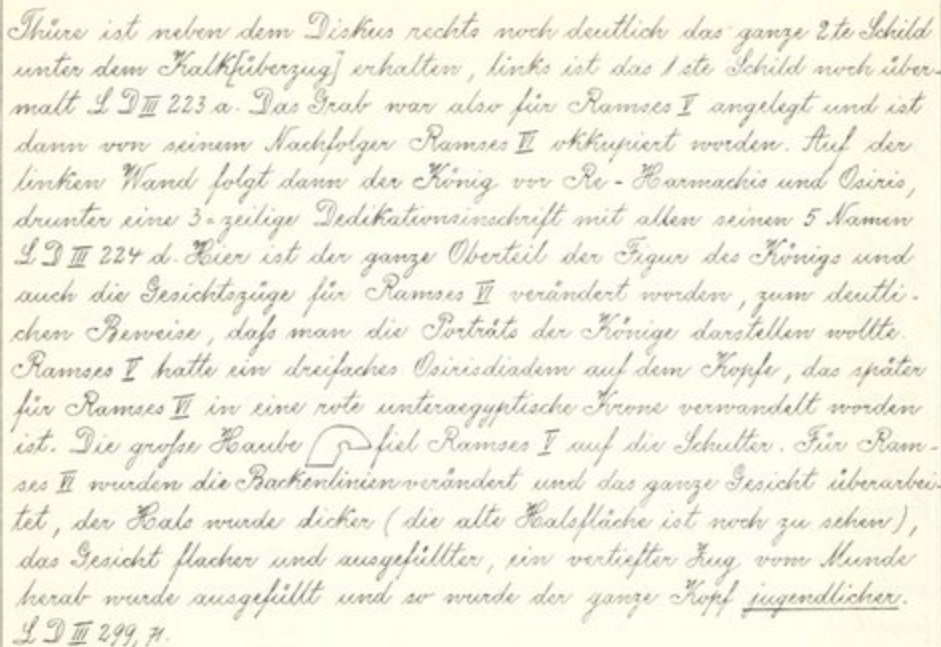 Thüre ist neben dem Diskus rechts noch deutlich das ganze 2te Schild
unter dem Kalk[überzug] erhalten, links ist das 1ste Schild noch über-
malt L D III 223 a. Das Grab war also für Ramses V angelegt und ist
dann von seinem Nachfolger Ramses VI okkupiert worden. Auf der
linken Wand folgt dann der König vor Re-Harmachis und Osiris,
drunter eine 3=zeilige Dedikationsinschrift mit allen seinen 5 Namen
L D III 224 d. Hier ist der ganze Oberteil der Figur des Königs und
auch die Gesichtszüge für Ramses VI verändert worden, zum deutli-
chen Beweise, dafs man die Porträts der Könige darstellen wollte.
Ramses V hatte ein dreifaches Osirisdiadem auf dem Kopfe, das später
für Ramses VI in eine rote unteraegyptische Krone verwandelt worden
ist. Die grofse Haube fiel Ramses V auf die Schulter. Für Ram-
ses VI wurden die Backenlinien verändert und das ganze Gesicht überarbei-
tet, der Hals wurde dicker (die alte Halsfläche ist noch zu sehen),
das Gesicht flacher und ausgefüllter, ein vertiefter Zug vom Munde
herab wurde ausgefüllt und so wurde der ganze Kopf jugendlicher.
L D III 299, 71.